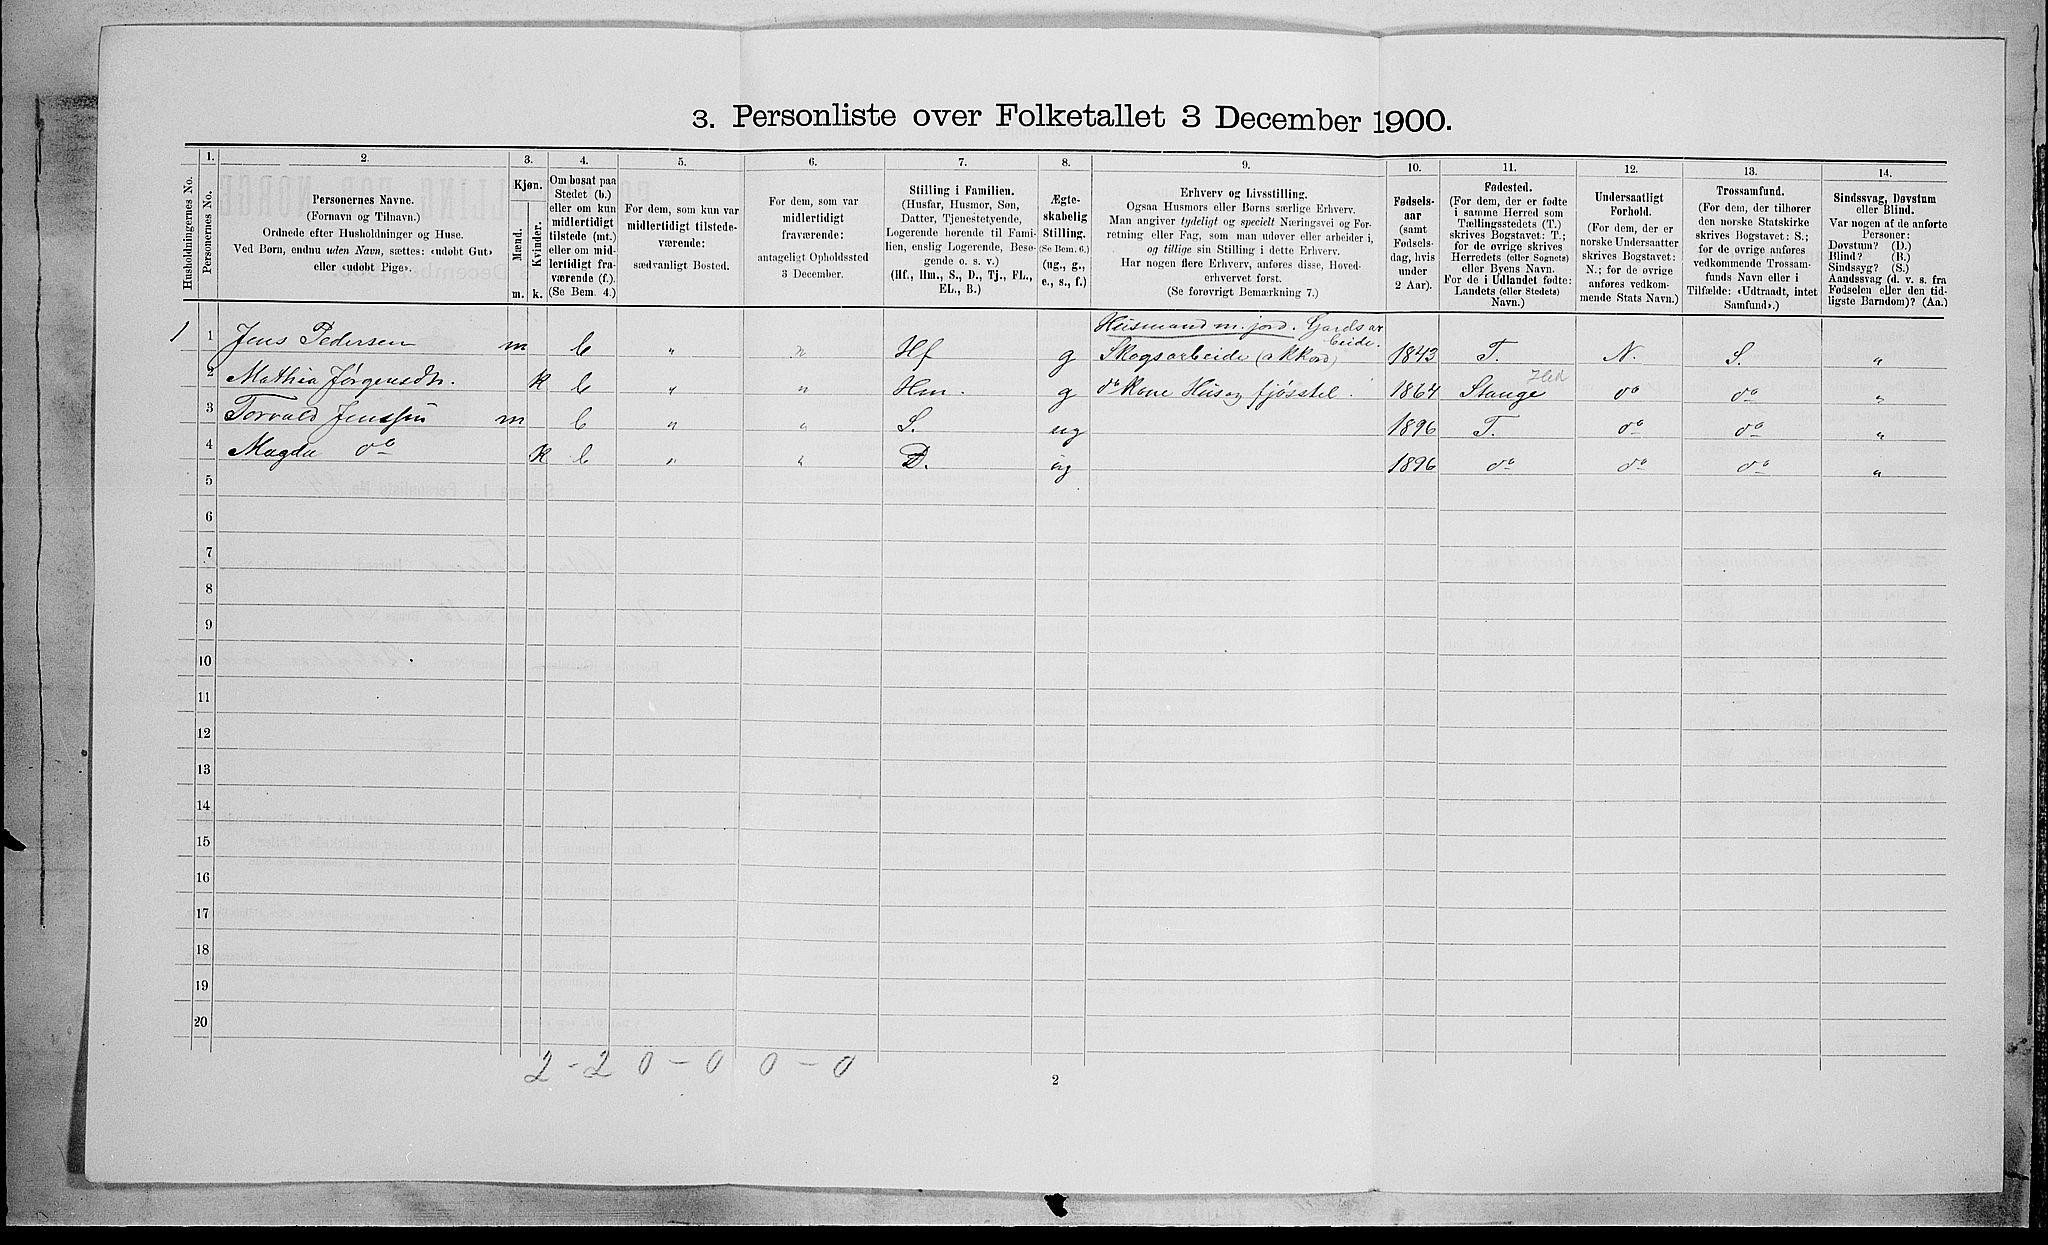 3. Personliste over Folketallet 3 December 1900.
Husholdningernes No.
1.
Personernes No.
2.
Personernes Navne.
(Fornavn og Tilnavn.)
Ordnede efter Husholdninger og Huse.
Ved Børn, endnu uden Navn, sættes: «udobt Gut»
eller «udobt Pige».
3.
Kjøn.
Mænd.
Kvinder.
m.
k.
4.
Om bosat paa
Stedet (b.)
eller om kun
midlertidigt
tilstede (mt.)
eller om mid-
lertidigt fra-
værende (f.).
(Se Bem. 4.)
5.
For dem, som kun var
midlertidigt tilstede-
værende:
sædvanligt Bosted.
6.
For dem, som var
midlertidigt
fraværende:
antageligt Opholdssted
3 December.
7.
Stilling i Familien.
(Husfar, Husmor, Søn,
Datter, Tjenestetyende,
Logerende hørende til Fami-
lien, enslig Logerende, Besø-
gende o. s. v.)
(Hf., Hm., S., D., Tj., FL.,
EL., B.)
8.
Ægte-
skabelig
Stilling.
(Se Bem. 6.)
(ug., g.,
e., s., f.)
9.
Erhverv og Livsstilling.
Ogsaa Husmors eller Børns særlige Erhverv.
Man angiver tydeligt og specielt Næringsvei og For-
retning eller Fag, som man udøver eller arbeider i,
og tillige sin Stilling i dette Erhverv.
Har nogen flere Erhverv, anføres disse, Hoved-
erhvervet først.
(Se forøvrigt Bemærkning 7.)
10.
Fødsels-
aar
(samt
Fødsels-
dag, hvis
under
2 Aar).
11.
Fødested.
(For dem, der er fødte
i samme Herred som
Tællingsstedets (T.)
skrives Bogstavet: T.;
for de øvrige skrives
Herredets (eller Sognets)
eller Byens Navn.
For de i Udlandet fødte:
Landets (eller Stedets)
Navn.)
12.
Undersaatligt
Forhold.
(For dem, der er
norske Undersaatter
skrives Bogstavet:
N.; for de øvrige
anføres vedkom-
mende Stats Navn.)
13.
Trossamfund.
(For dem, der tilhører
den norske Statskirke
skrives Bogstavet: S.;
for de øvrige anføres
vedkommende Trossam-
funds Navn eller i
Tilfælde: «Udtraadt, intet
Samfund».)
14.
Sindssvag, Døvstum
eller Blind.
Var nogen af de anførte
Personer:
Døvstum? (D.)
Blind? (B.)
Sindssyg? (S.)
Aandssvag (d. v. s. fra
Fødselen eller den tid-
ligste Barndom)? (Aa.)
Husmand m. jord. Gardsar
beide.
1 1 Jens Pedersen m b " " Hf g Skogsarbeide (akkord) 1843 T. N. S. "
Hed
2 Mathia Jørgensdtr. k b " " Hm. g do Kone Hus og fjøsstel. 1864 Stange do do "
3 Torvald Jenssøn m b " " S. ug 1896 T. do do "
4 Magda do k b " " D. ug 1896 do do do "
5
6
7
8
9
10
11
12
13
14
15
16
17
18
19
20
2 - 2 0 - 0 0 - 0
2